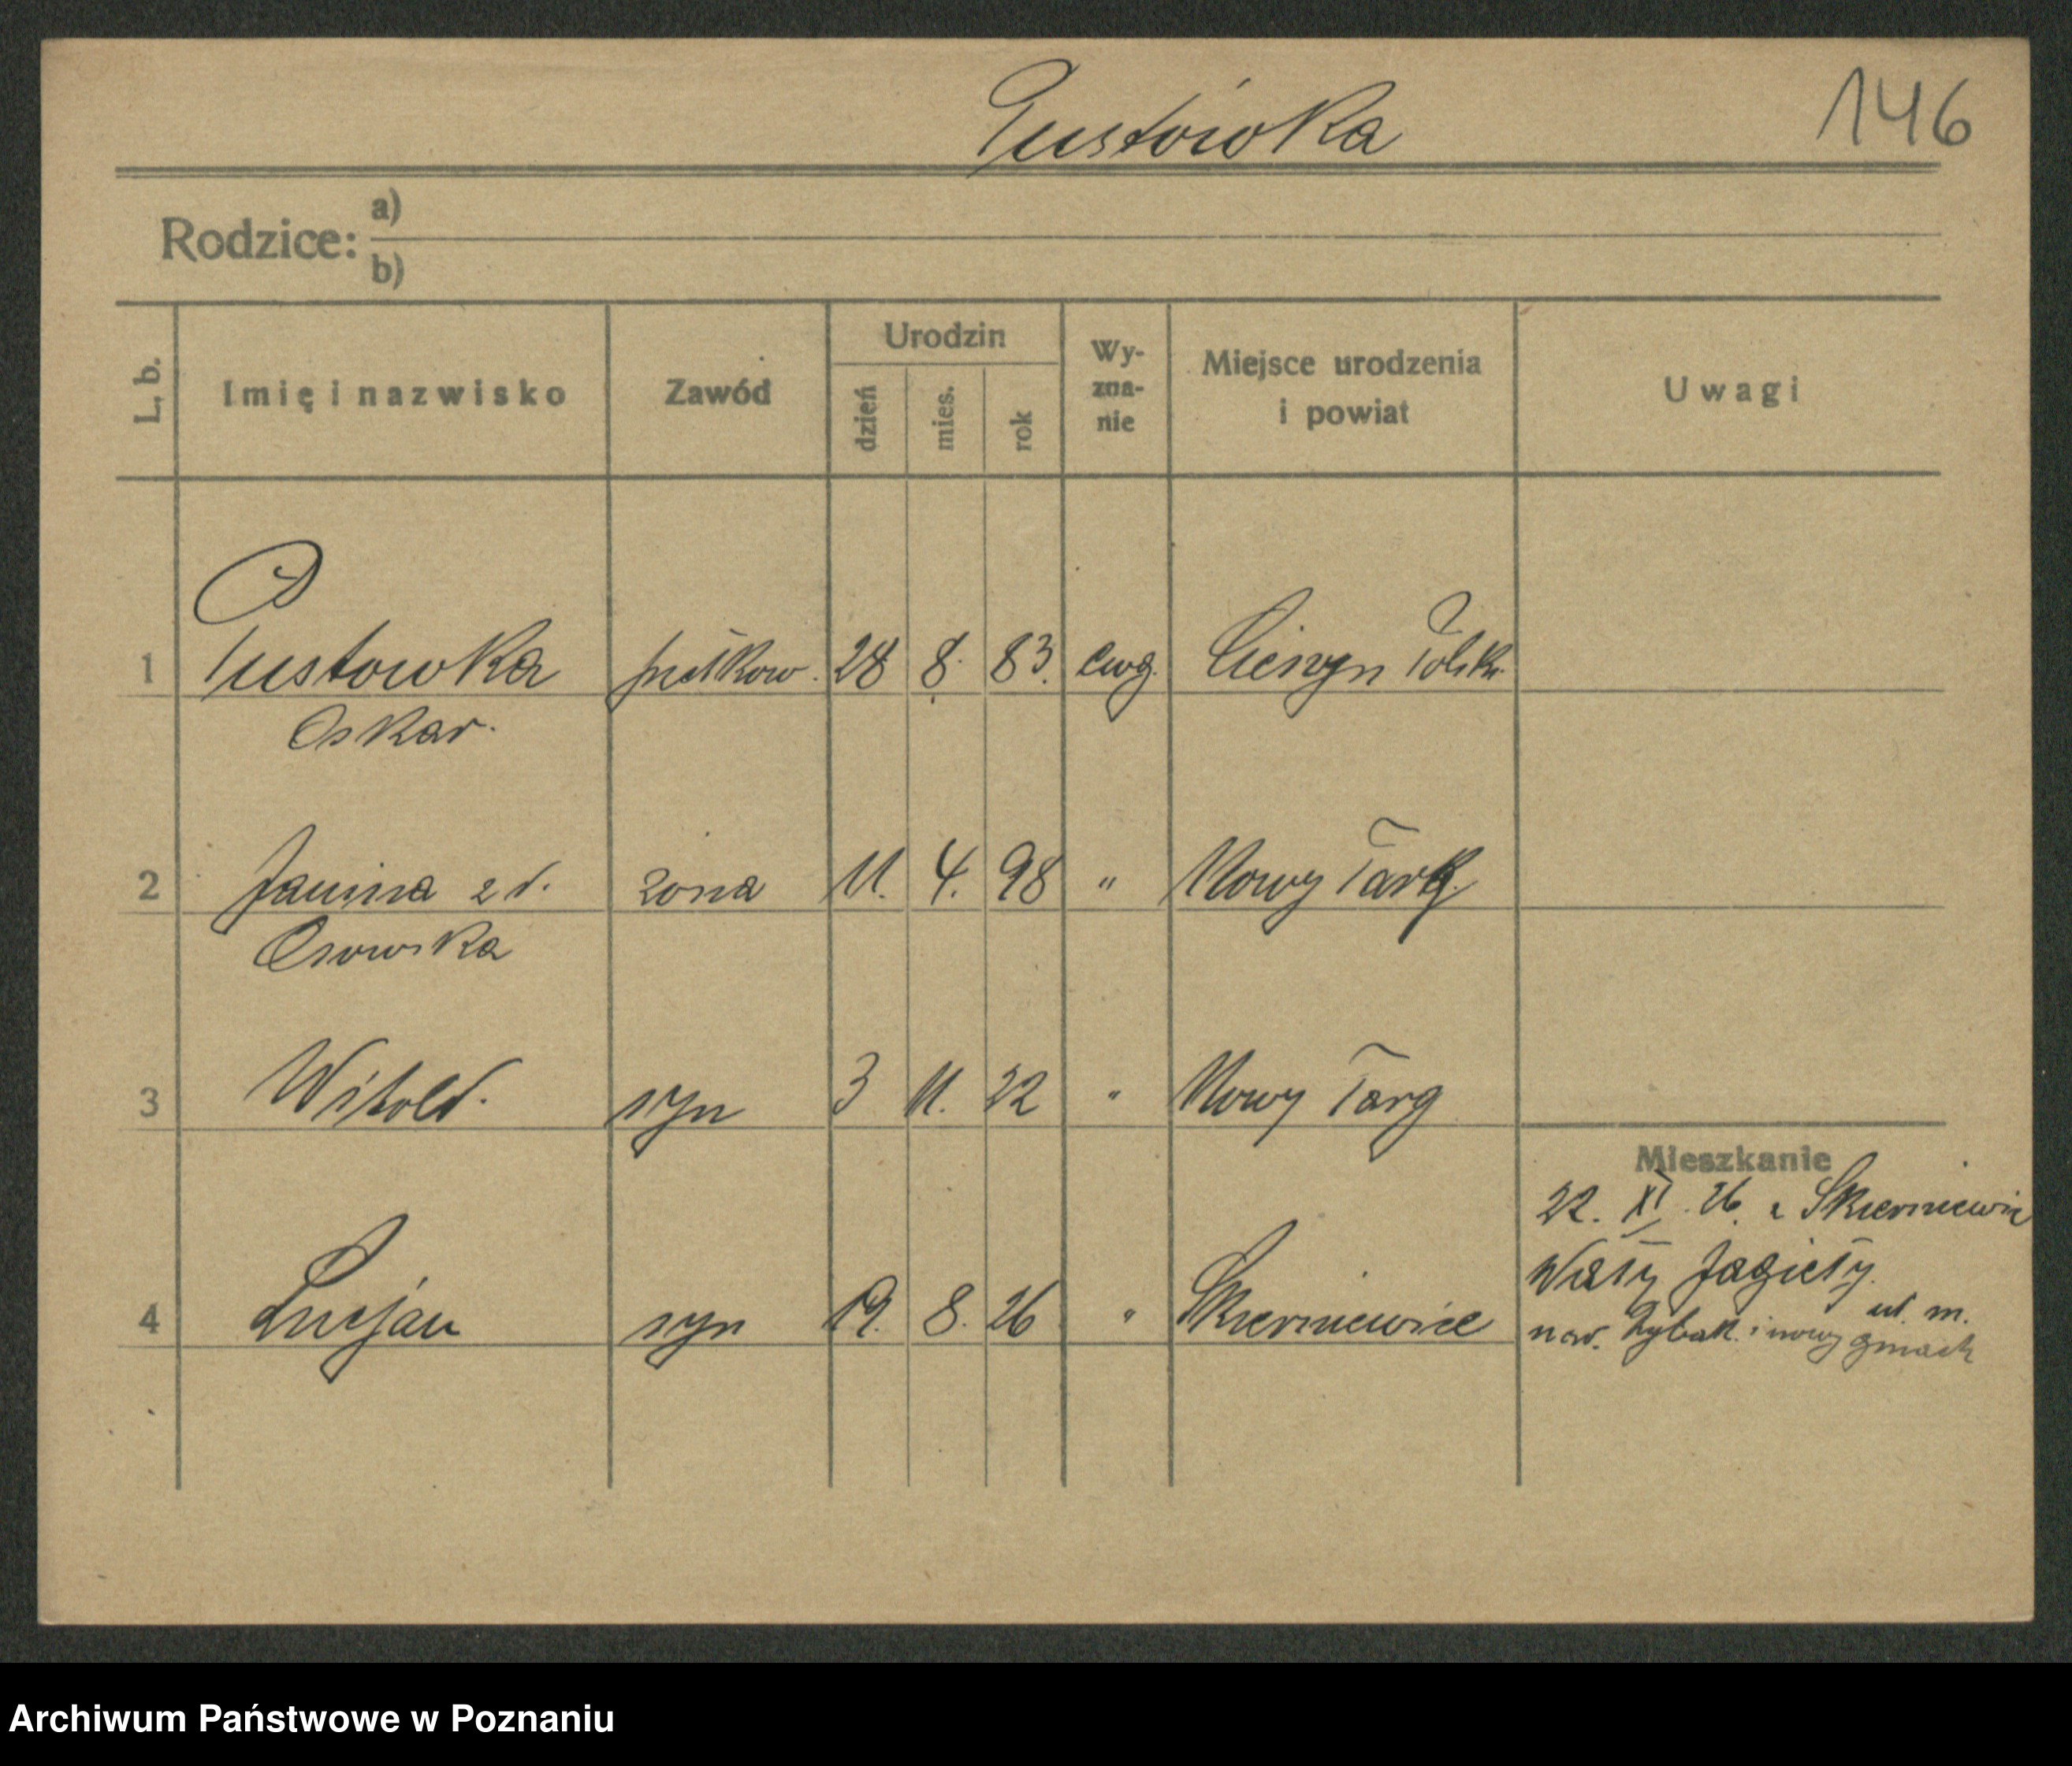 Pustówka
146
Rodzice:
a)
b)
L. b.
Imię i nazwisko
Zawód
Urodzin
dzień
mies.
rok
Wy-
zna-
nie
Miejsce urodzenia
i powiat
Uwagi
1 Pustowka pułkow. 28 8. 83. ewg. Cieszyn Polsk.
Oskar.
2 Janina z d. żona 11. 4. 98 " Nowy Targ
Osowska
3 Witold. syn 3 11. 22 " Nowy Targ
Mieszkanie
22. XI. 26. z Skierniewic
Wały Jagiełły.
4 Lucjan syn 19. 8. 26 " Skierniewice
nar. Rybak. i nowy gmach
Archiwum Państwowe w Poznaniu